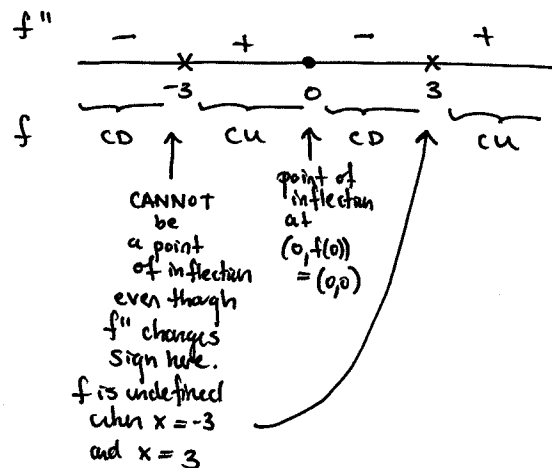 f"
− + − +
-3 0 3
f CD CU CD CU
CANNOT
be
a point
of inflection
even though
f" changes
sign here.
f is undefined
when x = -3
and x = 3
point of
inflection
at
(0, f(0))
= (0,0)